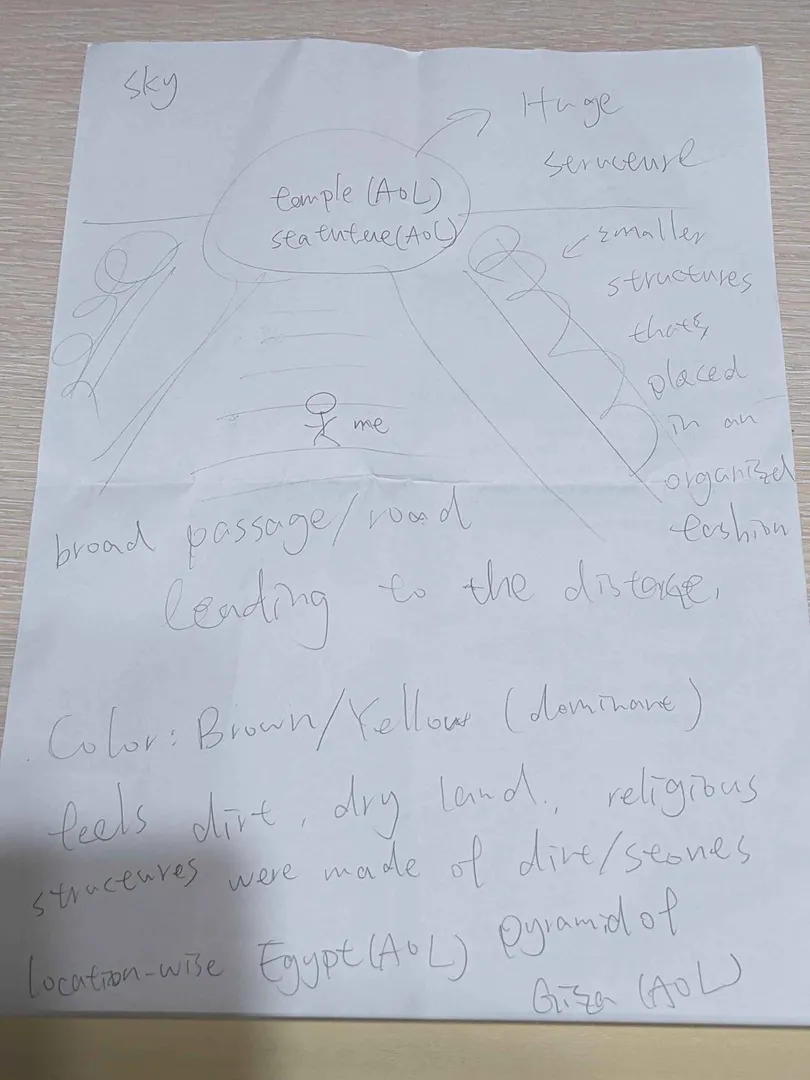 sky
Huge
structure
temple (AOL)
statuture (AOL)
smaller
structures
thats
placed
in an
organized
fashion
me
broad passage/road
leading to the distance,
Color: Brown/Yellow (dominant)
feels dirt, dry land, religious
structures were made of dirt/stones
location-wise Egypt (AOL) pyramid of
Giza (AOL)